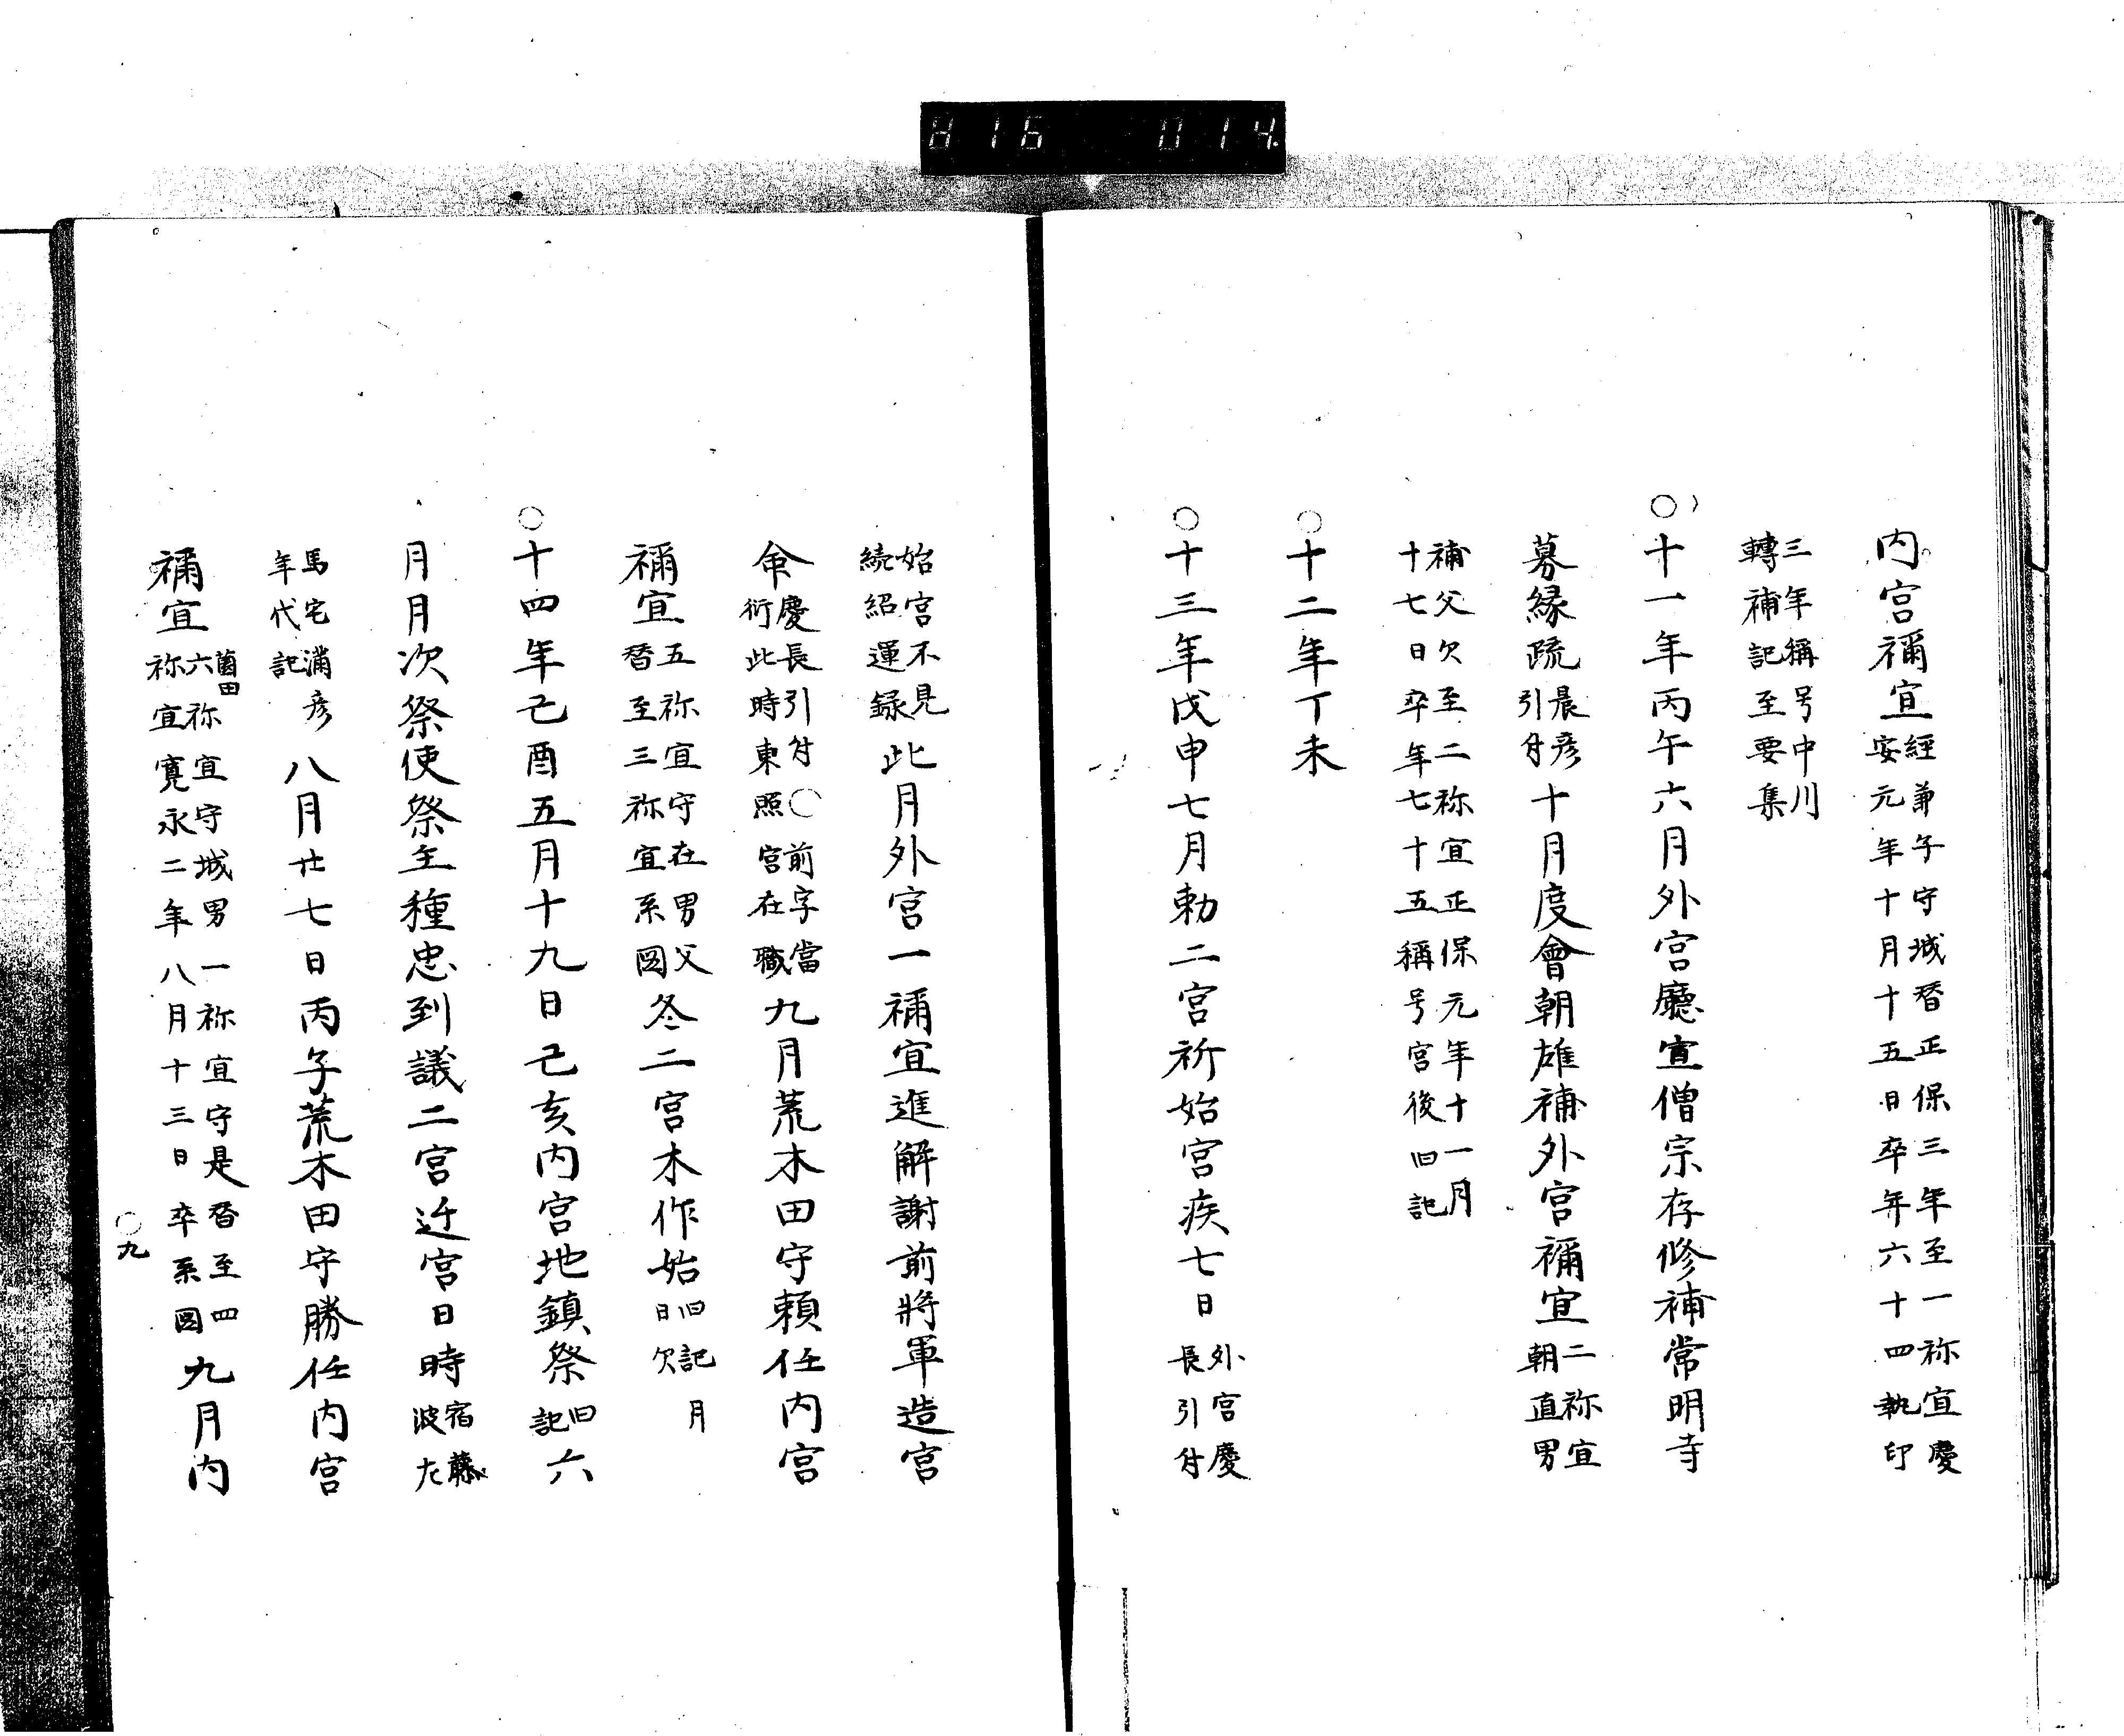 816 014
内宮禰宜
経兼子守城替正保三年至一祢宜慶
安元年十月十五日卒年六十四執印
三年稱号中川
轉補記至要集
〇十一年丙午六月外宮廳宣僧宗存修補常明寺
募縁疏
晨彦
引付
十月度會朝雄補外宮禰宜
二祢宜
朝直男
補父欠至二祢宜正保元年十一月
十七日卒年七十五稱号宮後旧記
〇十二年丁未
〇十三年戊申七月勅二宮祈始宮疾七日
外宮慶
長引付
始宮不見
続紹運録
此月外宮一禰宜進解謝前將軍造宮
命
慶長引付〇前字當
衍此時東照宮在職
九月荒木田守頼任内宮
禰宜
五祢宜守在男父
替至三祢宜系図
冬二宮木作始
旧記月
日欠
〇十四年己酉五月十九日己亥内宮地鎮祭
旧
記
六
月月次祭使祭主種忠到議二宮近宮日時
宿藤
波左
馬宅満彦
年代記
八月廿七日丙子荒木田守勝任内宮
禰宜
薗田
六祢宜守城男一祢宜守是替至四
祢宜寛永二年八月十三日卒系図
九月内
〇九